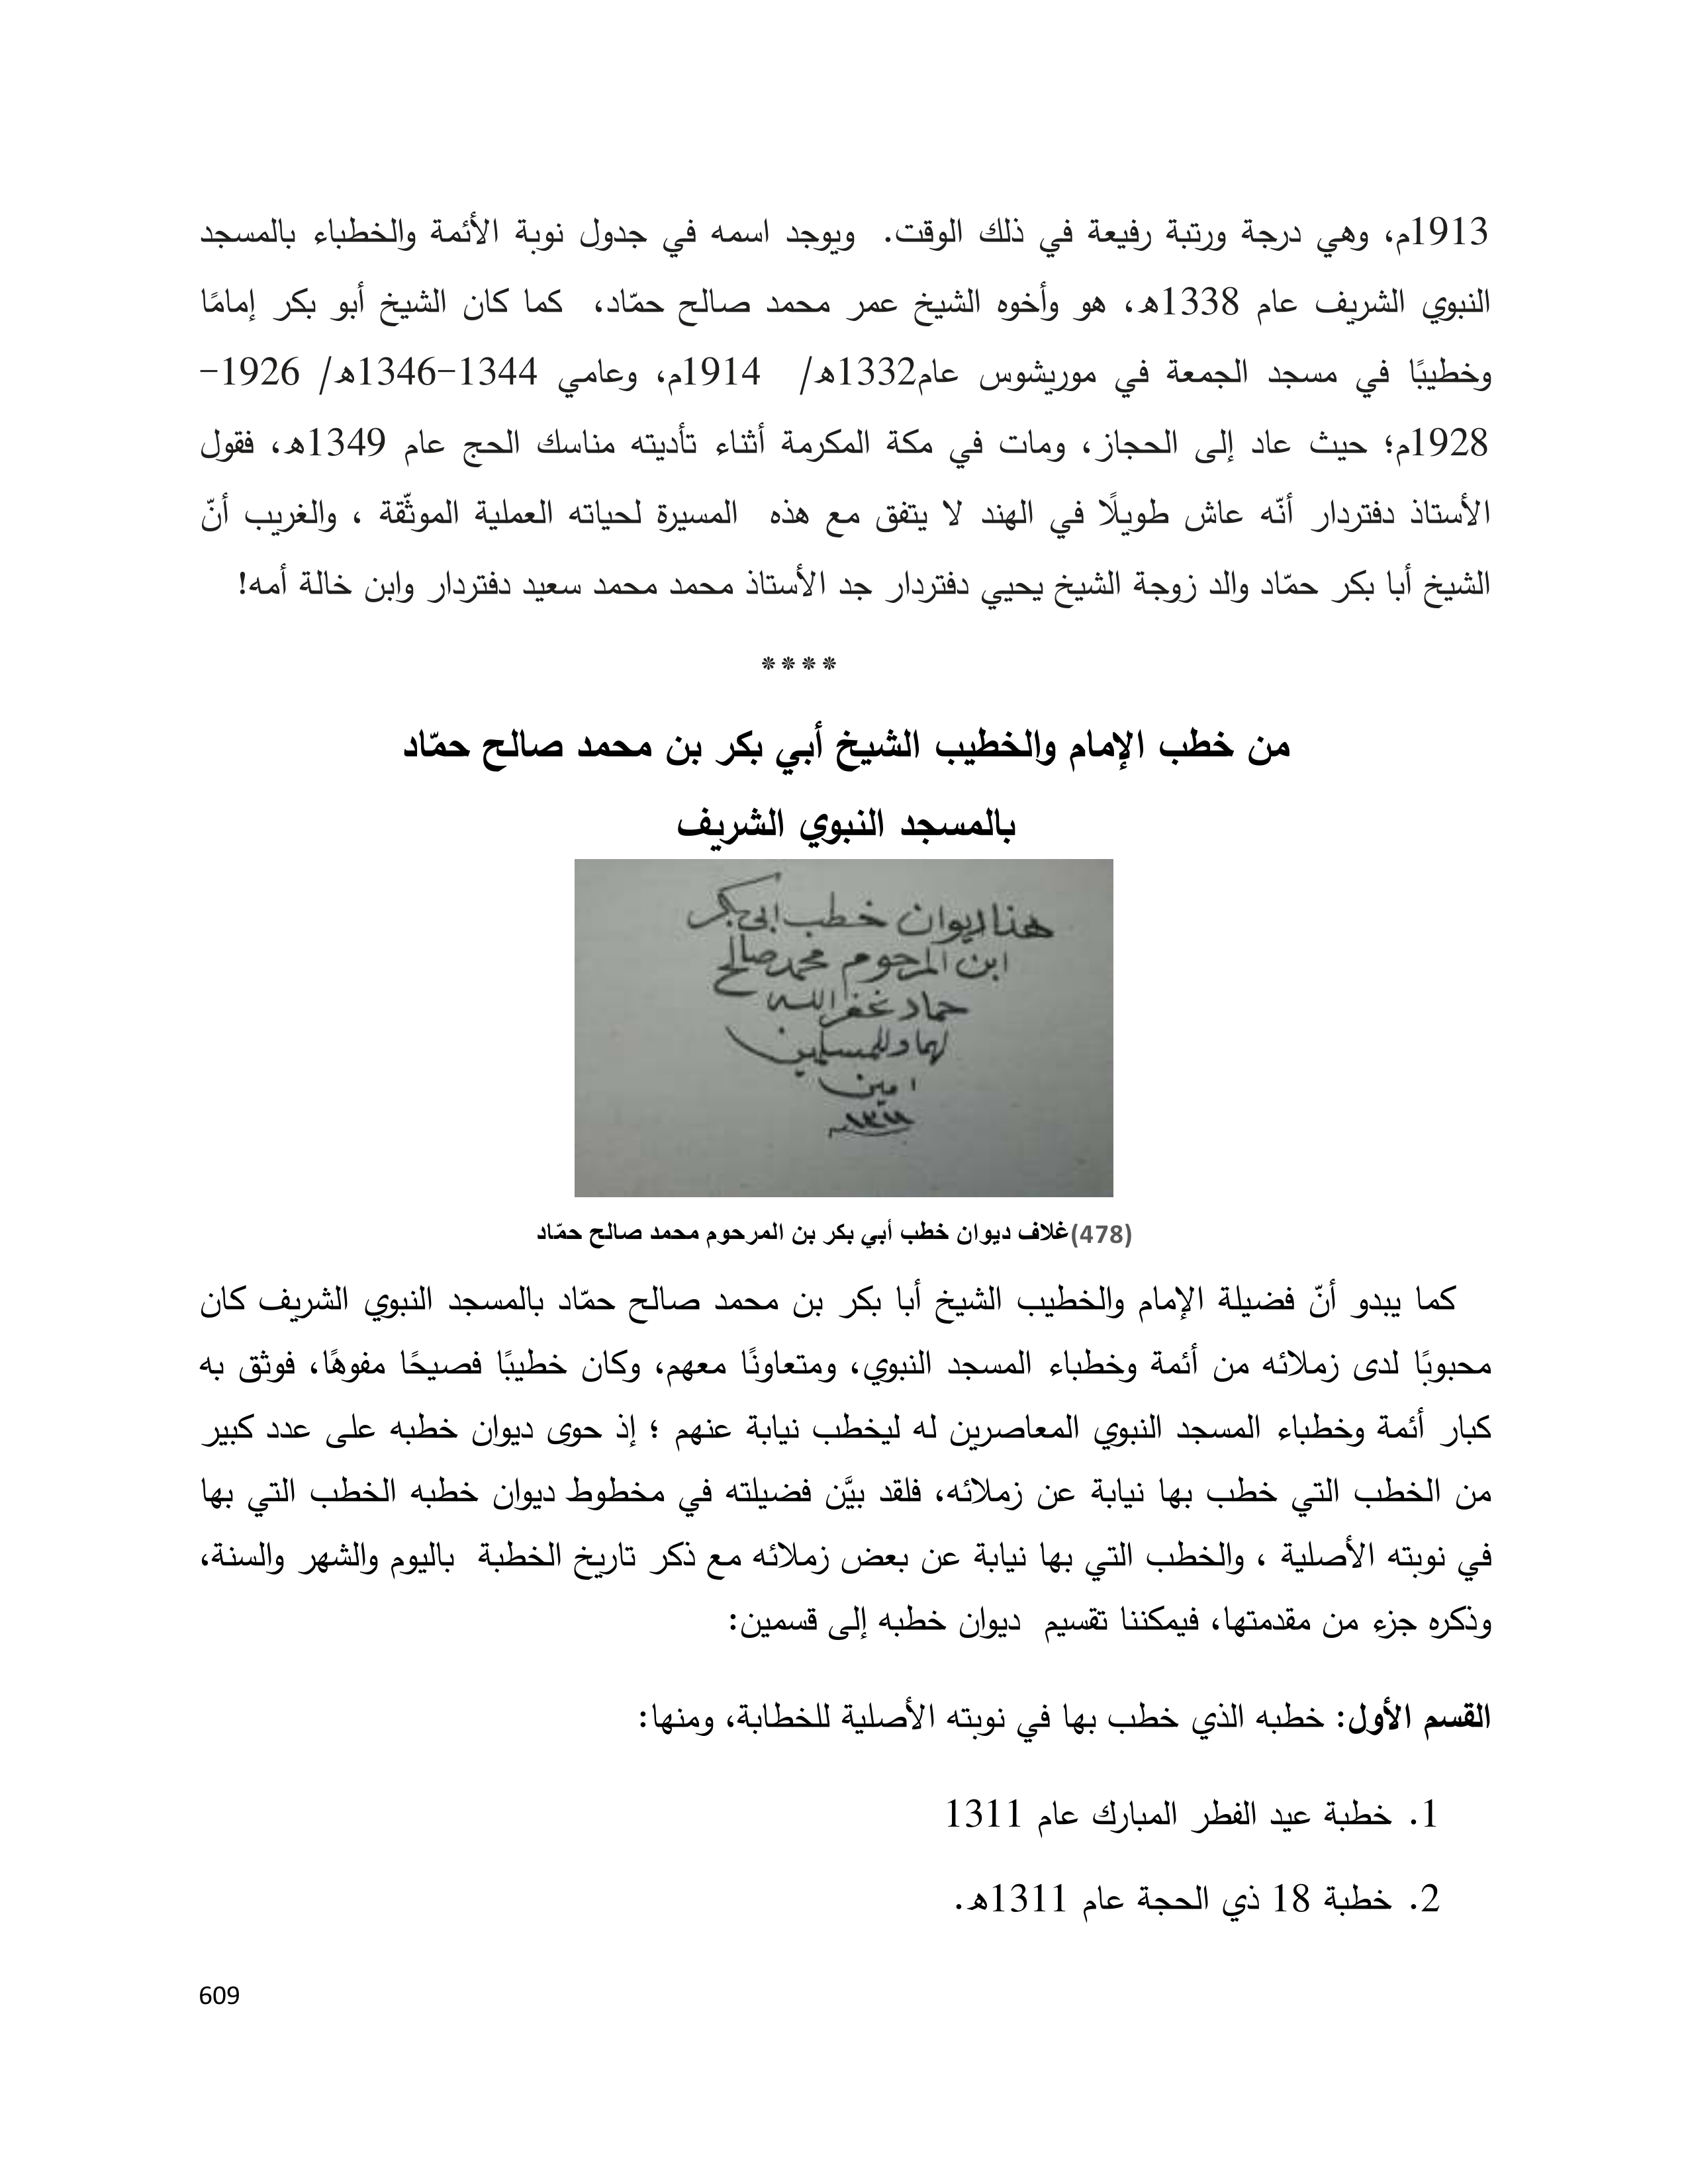 1913م، وهي درجة ورتبة رفيعة في ذلك الوقت. ويوجد اسمه في جدول نوبة الأئمة والخطباء بالمسجد
النبوي الشريف عام 1338ه، هو وأخوه الشيخ عمر محمد صالح حمّاد، كما كان الشيخ أبو بكر إمامًا
وخطيبًا في مسجد الجمعة في موريشوس عام1332ه/ 1914م، وعامي 1344-1346ه/ 1926-
1928م؛ حيث عاد إلى الحجاز، ومات في مكة المكرمة أثناء تأديته مناسك الحج عام 1349ه، فقول
الأستاذ دفتردار أنّه عاش طويلًا في الهند لا يتفق مع هذه المسيرة لحياته العملية الموثّقة ، والغريب أنّ
الشيخ أبا بكر حمّاد والد زوجة الشيخ يحيي دفتردار جد الأستاذ محمد محمد سعيد دفتردار وابن خالة أمه!
****
من خطب الإمام والخطيب الشيخ أبي بكر بن محمد صالح حمّاد
بالمسجد النبوي الشريف
هذا ديوان خطب ابي بكر
ابن المرحوم محمد صالح
حماد غفر الله
لهما وللمسلمين
امين
(478)غلاف ديوان خطب أبي بكر بن المرحوم محمد صالح حمّاد
كما يبدو أنّ فضيلة الإمام والخطيب الشيخ أبا بكر بن محمد صالح حمّاد بالمسجد النبوي الشريف كان
محبوبًا لدى زملائه من أئمة وخطباء المسجد النبوي، ومتعاونًا معهم، وكان خطيبًا فصيحًا مفوهًا، فوثق به
كبار أئمة وخطباء المسجد النبوي المعاصرين له ليخطب نيابة عنهم ؛ إذ حوى ديوان خطبه على عدد كبير
من الخطب التي خطب بها نيابة عن زملائه، فلقد بيَّن فضيلته في مخطوط ديوان خطبه الخطب التي بها
في نوبته الأصلية ، والخطب التي بها نيابة عن بعض زملائه مع ذكر تاريخ الخطبة باليوم والشهر والسنة،
وذكره جزء من مقدمتها، فيمكننا تقسيم ديوان خطبه إلى قسمين:
القسم الأول: خطبه الذي خطب بها في نوبته الأصلية للخطابة، ومنها:
1. خطبة عيد الفطر المبارك عام 1311
2. خطبة 18 ذي الحجة عام 1311ه.
609